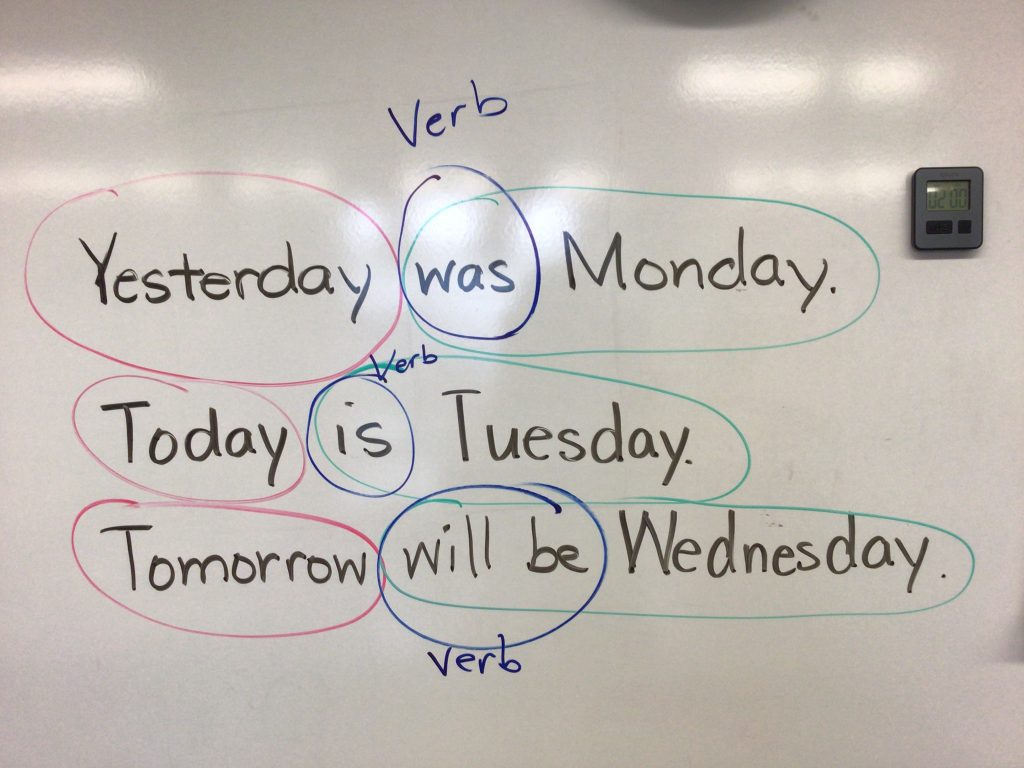 Verb
Yesterday was Monday.
Verb
Today is Tuesday.
Tomorrow will be Wednesday.
verb